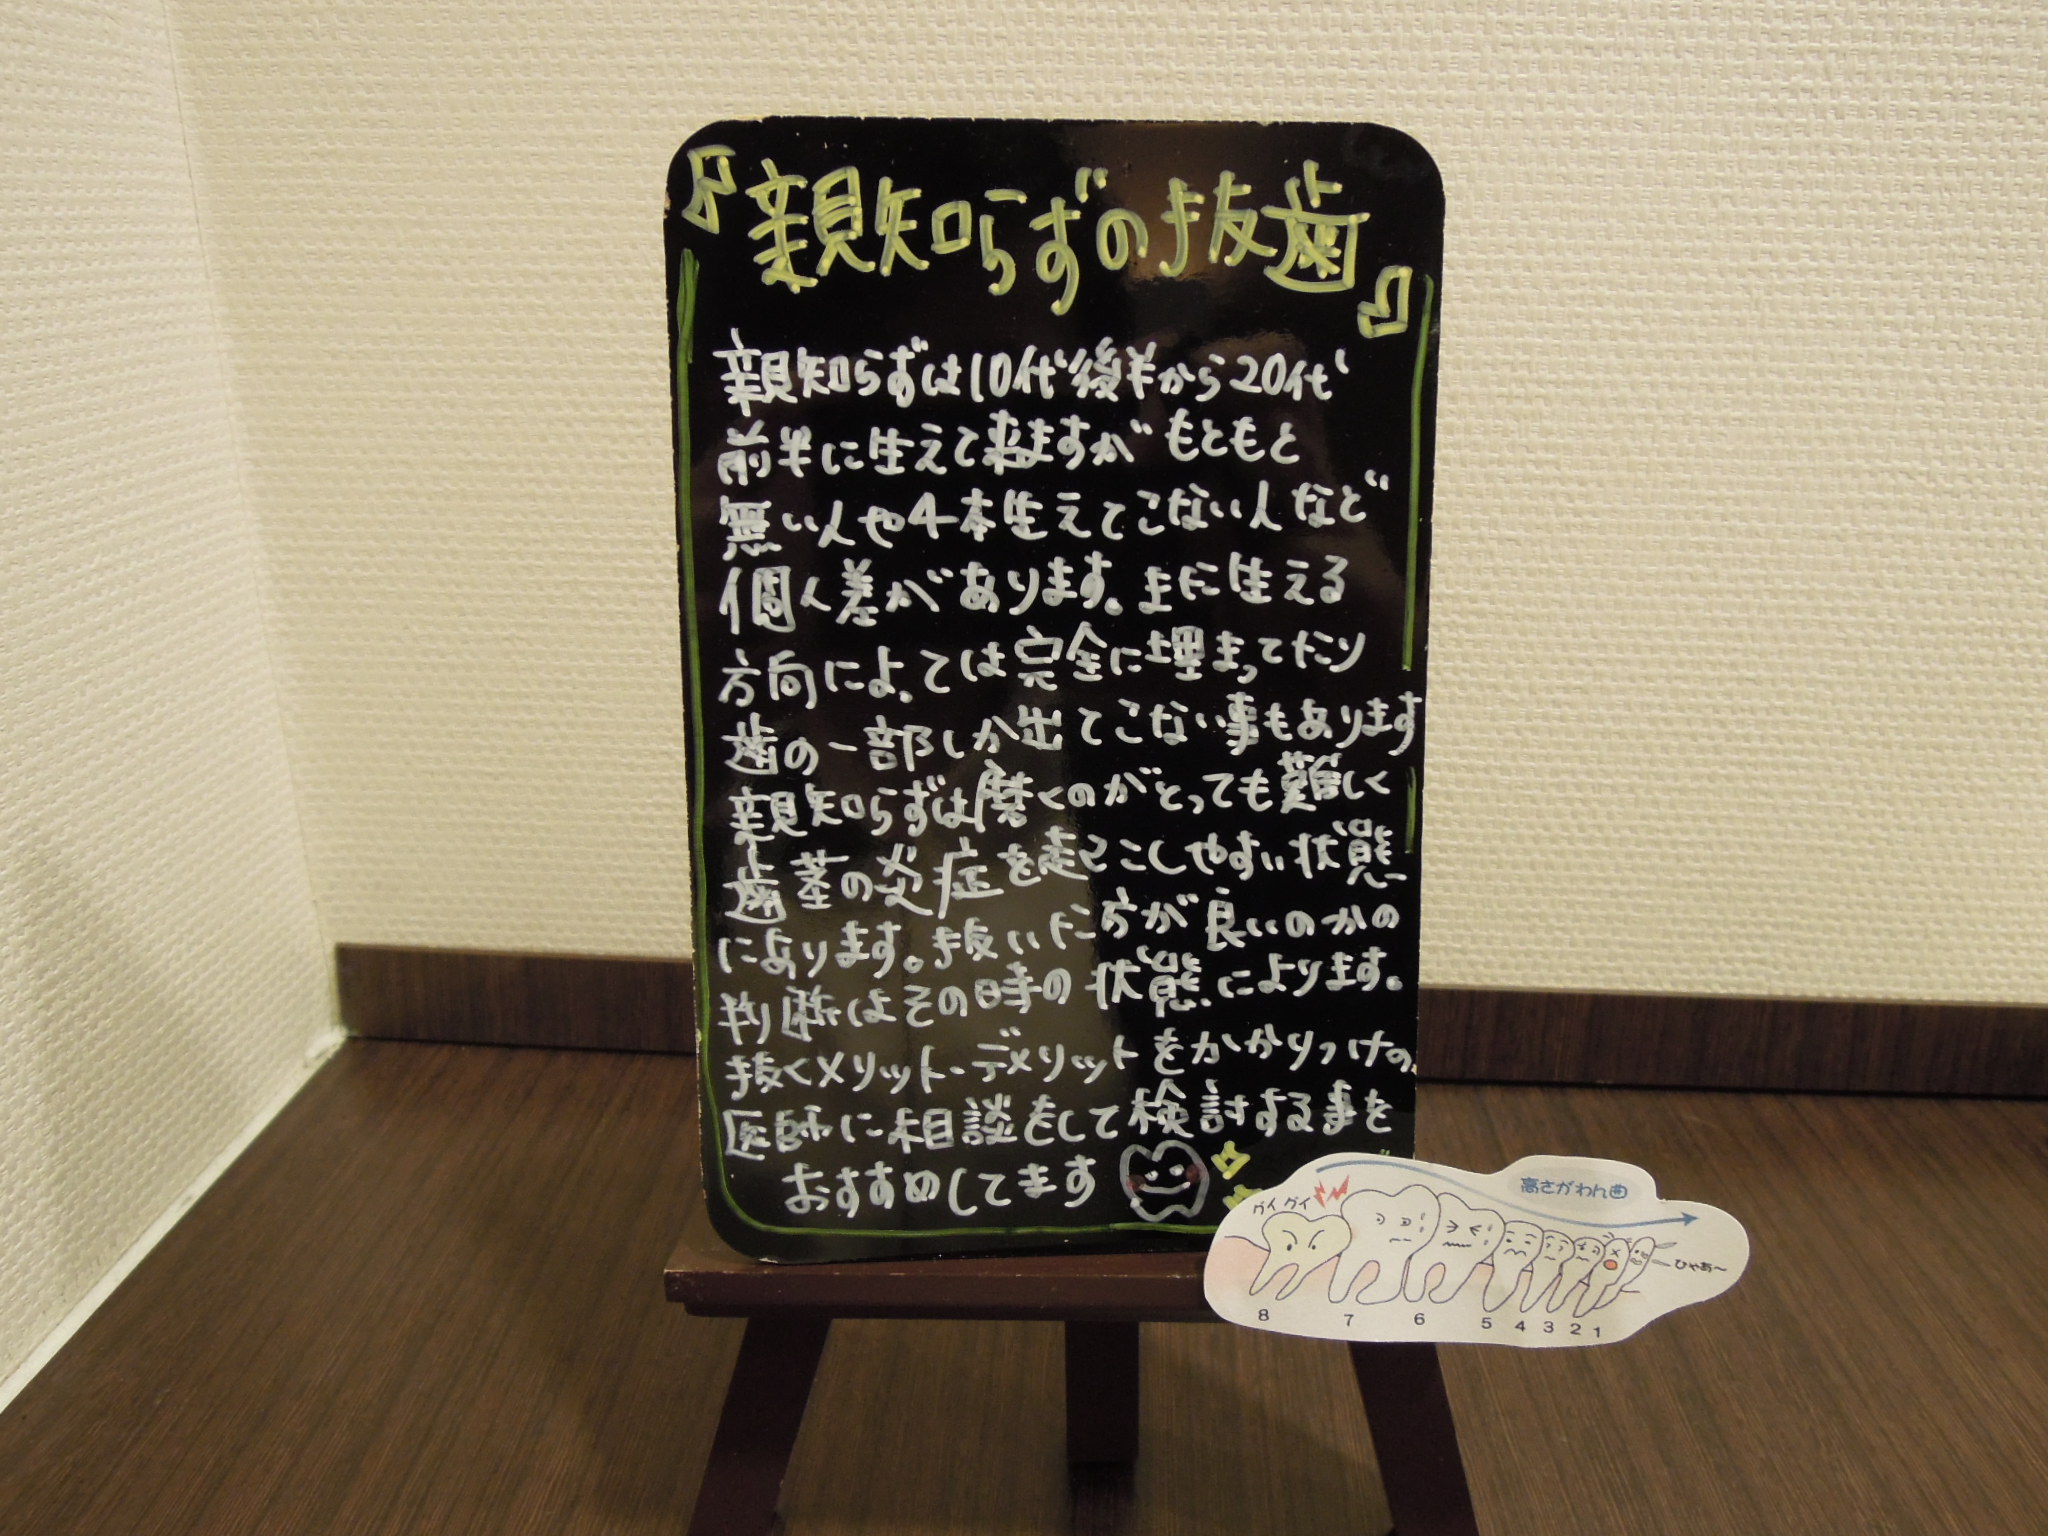 『親知らずの抜歯』
親知らずは10代後半から20代
前半に生えて来ますが もともと
無い人や4本生えてこない人など
個人差があります。また生える
方向によっては完全に埋まってたり
歯の一部しか出てこない事もあります
親知らずは磨くのがとっても難しく
歯茎の炎症を起こしやすい状態
にあります。抜いた方が良いのかの
判断はその時の状態によります。
抜くメリット・デメリットをかかりつけの
医師に相談をして検討する事を
おすすめしてます
高さがわん曲
グイグイ
ひゃあ〜
8 7 6 5 4 3 2 1